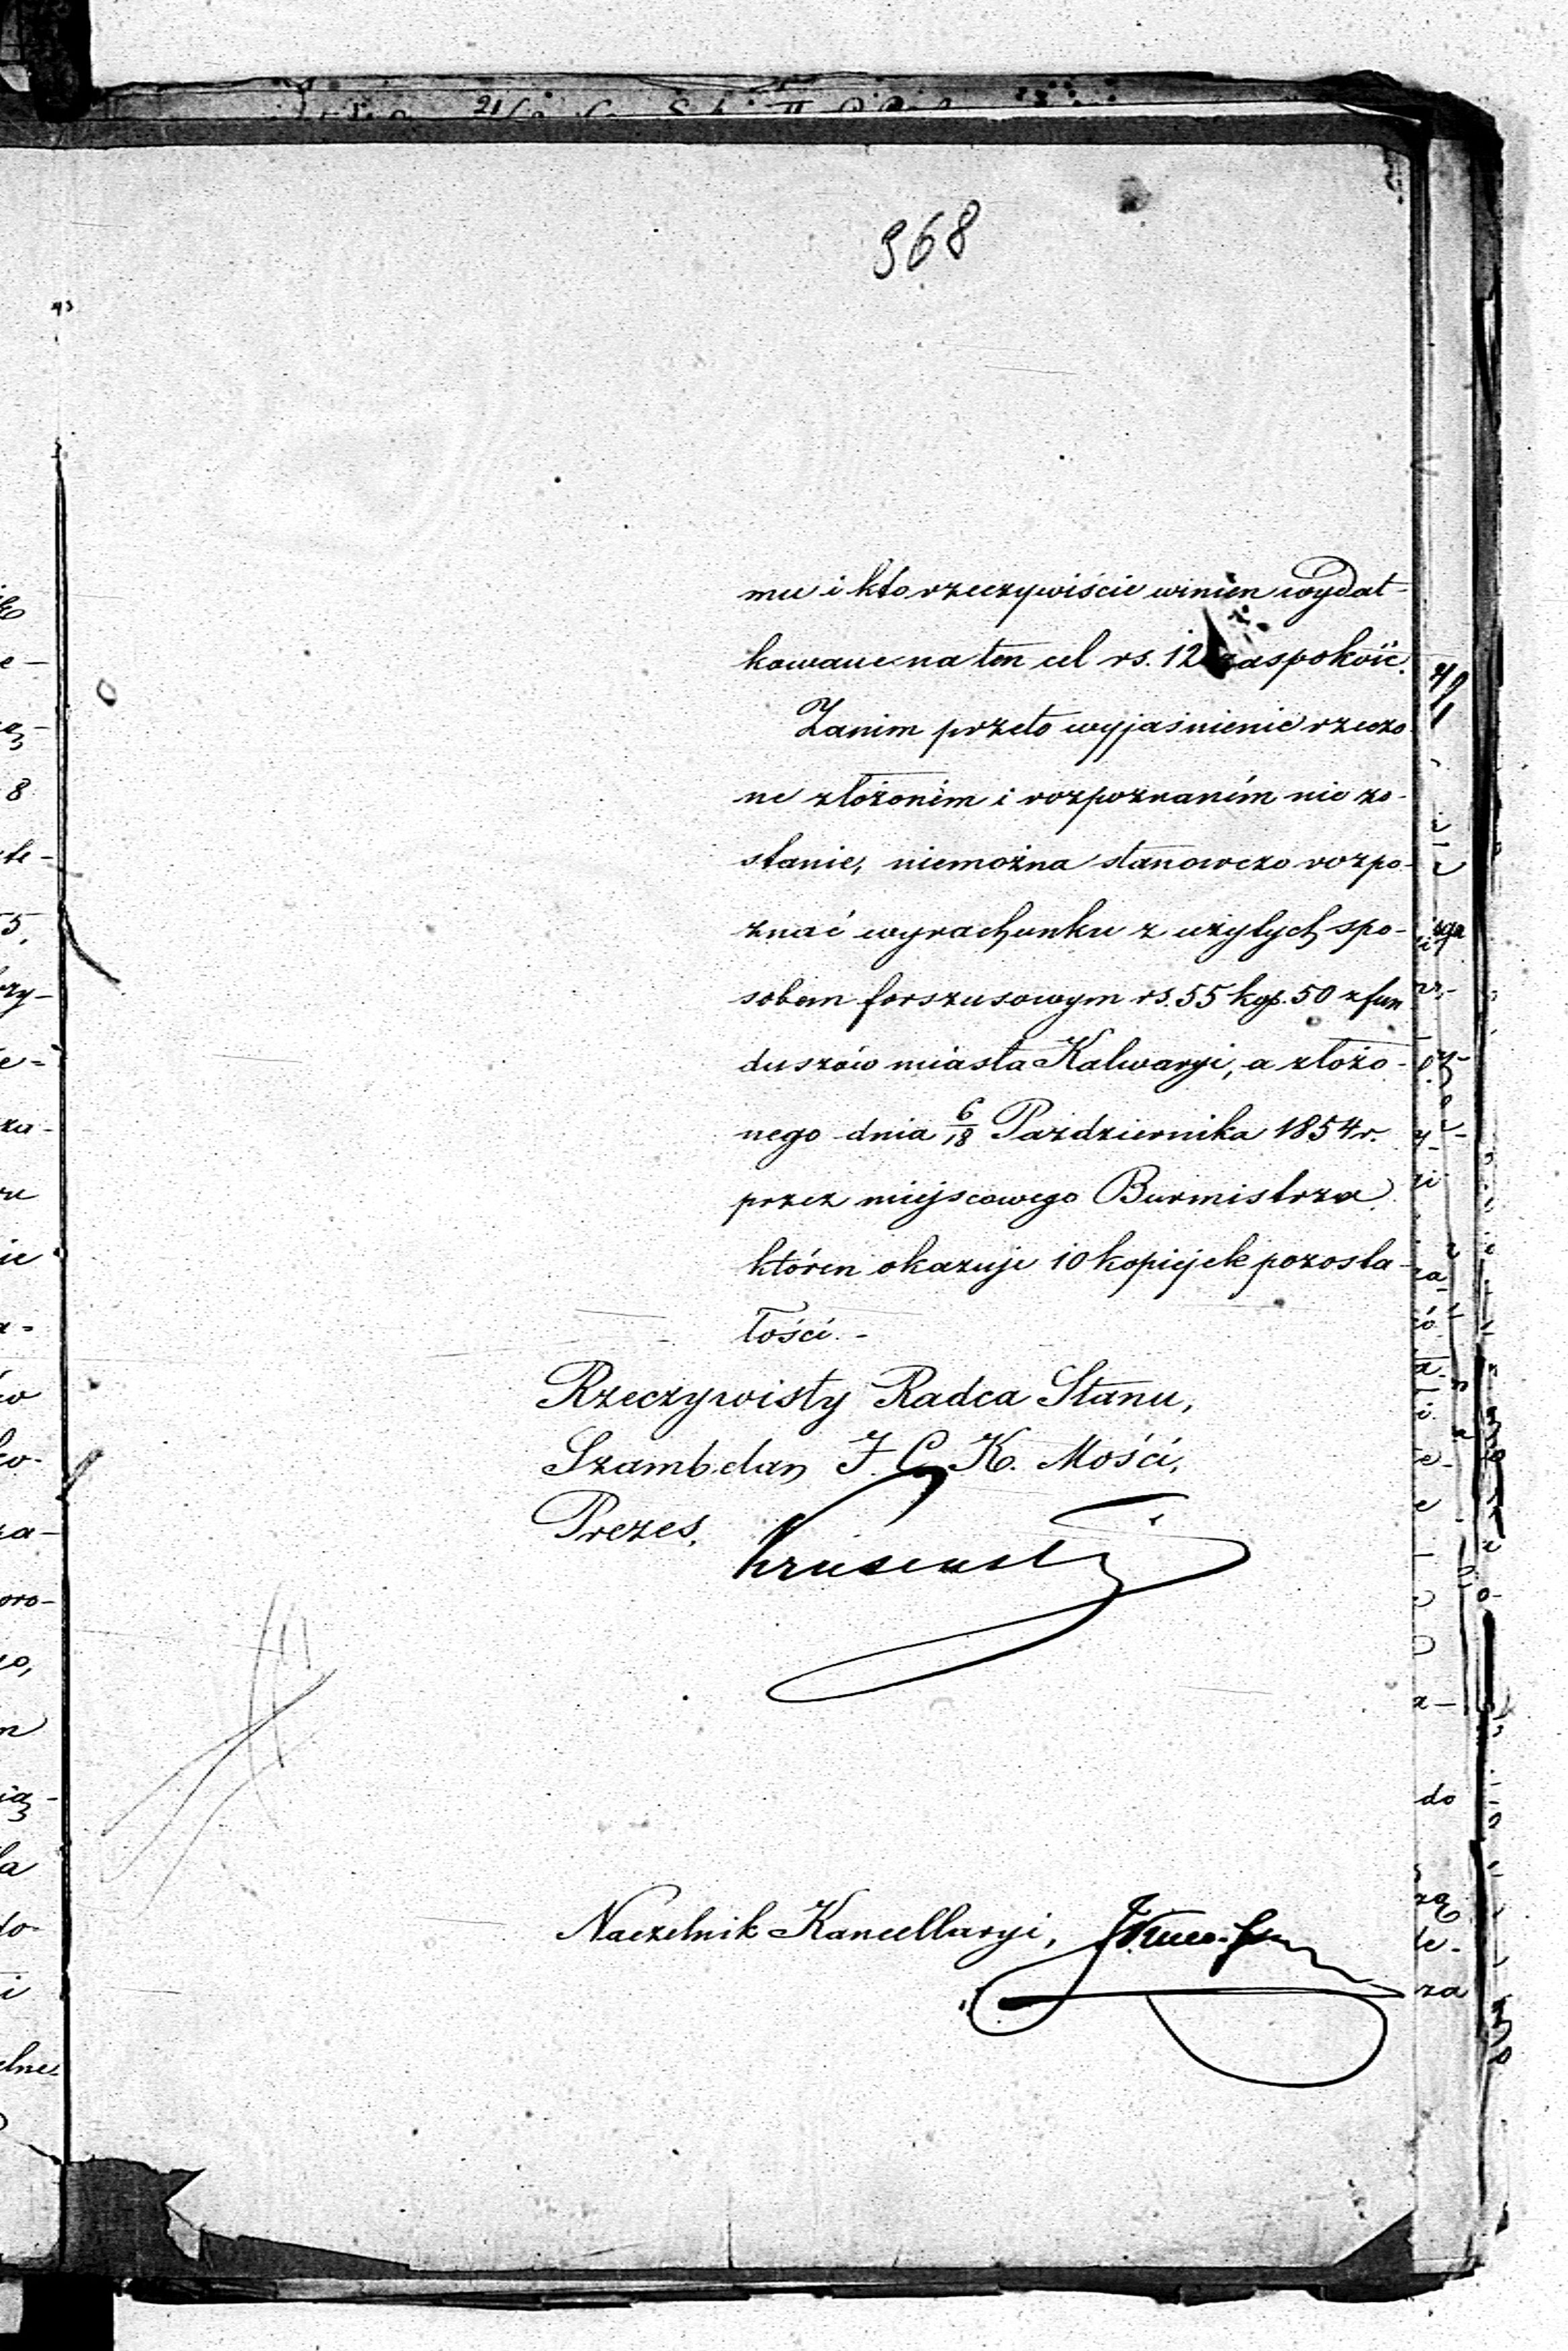 968
mu i kto rzeczywiście winien wydat-
kowane na ten cel rs. 12 zaspokoić.
Zanim przeto wyjaśnienie rzeczo-
ne złożoném i rozpoznaném nie zo-
stanie, niemożna stanowczo rozpo-
znać wyrachunku z użytych spo-
sobem forszusowym rs. 55 kop. 50 z fun
duszów miasta Kalwaryi, a złożo-
nego dnia 6/18 Pazdziernika 1854 r.
przez miejscowego Burmistrza
któren okazuje 10 kopiejek pozosta-
łości.-
Rzeczywisty Radca Stanu,
Szambelan J. C. K. Mości,
Prezes,
Naczelnik Kancellaryi,